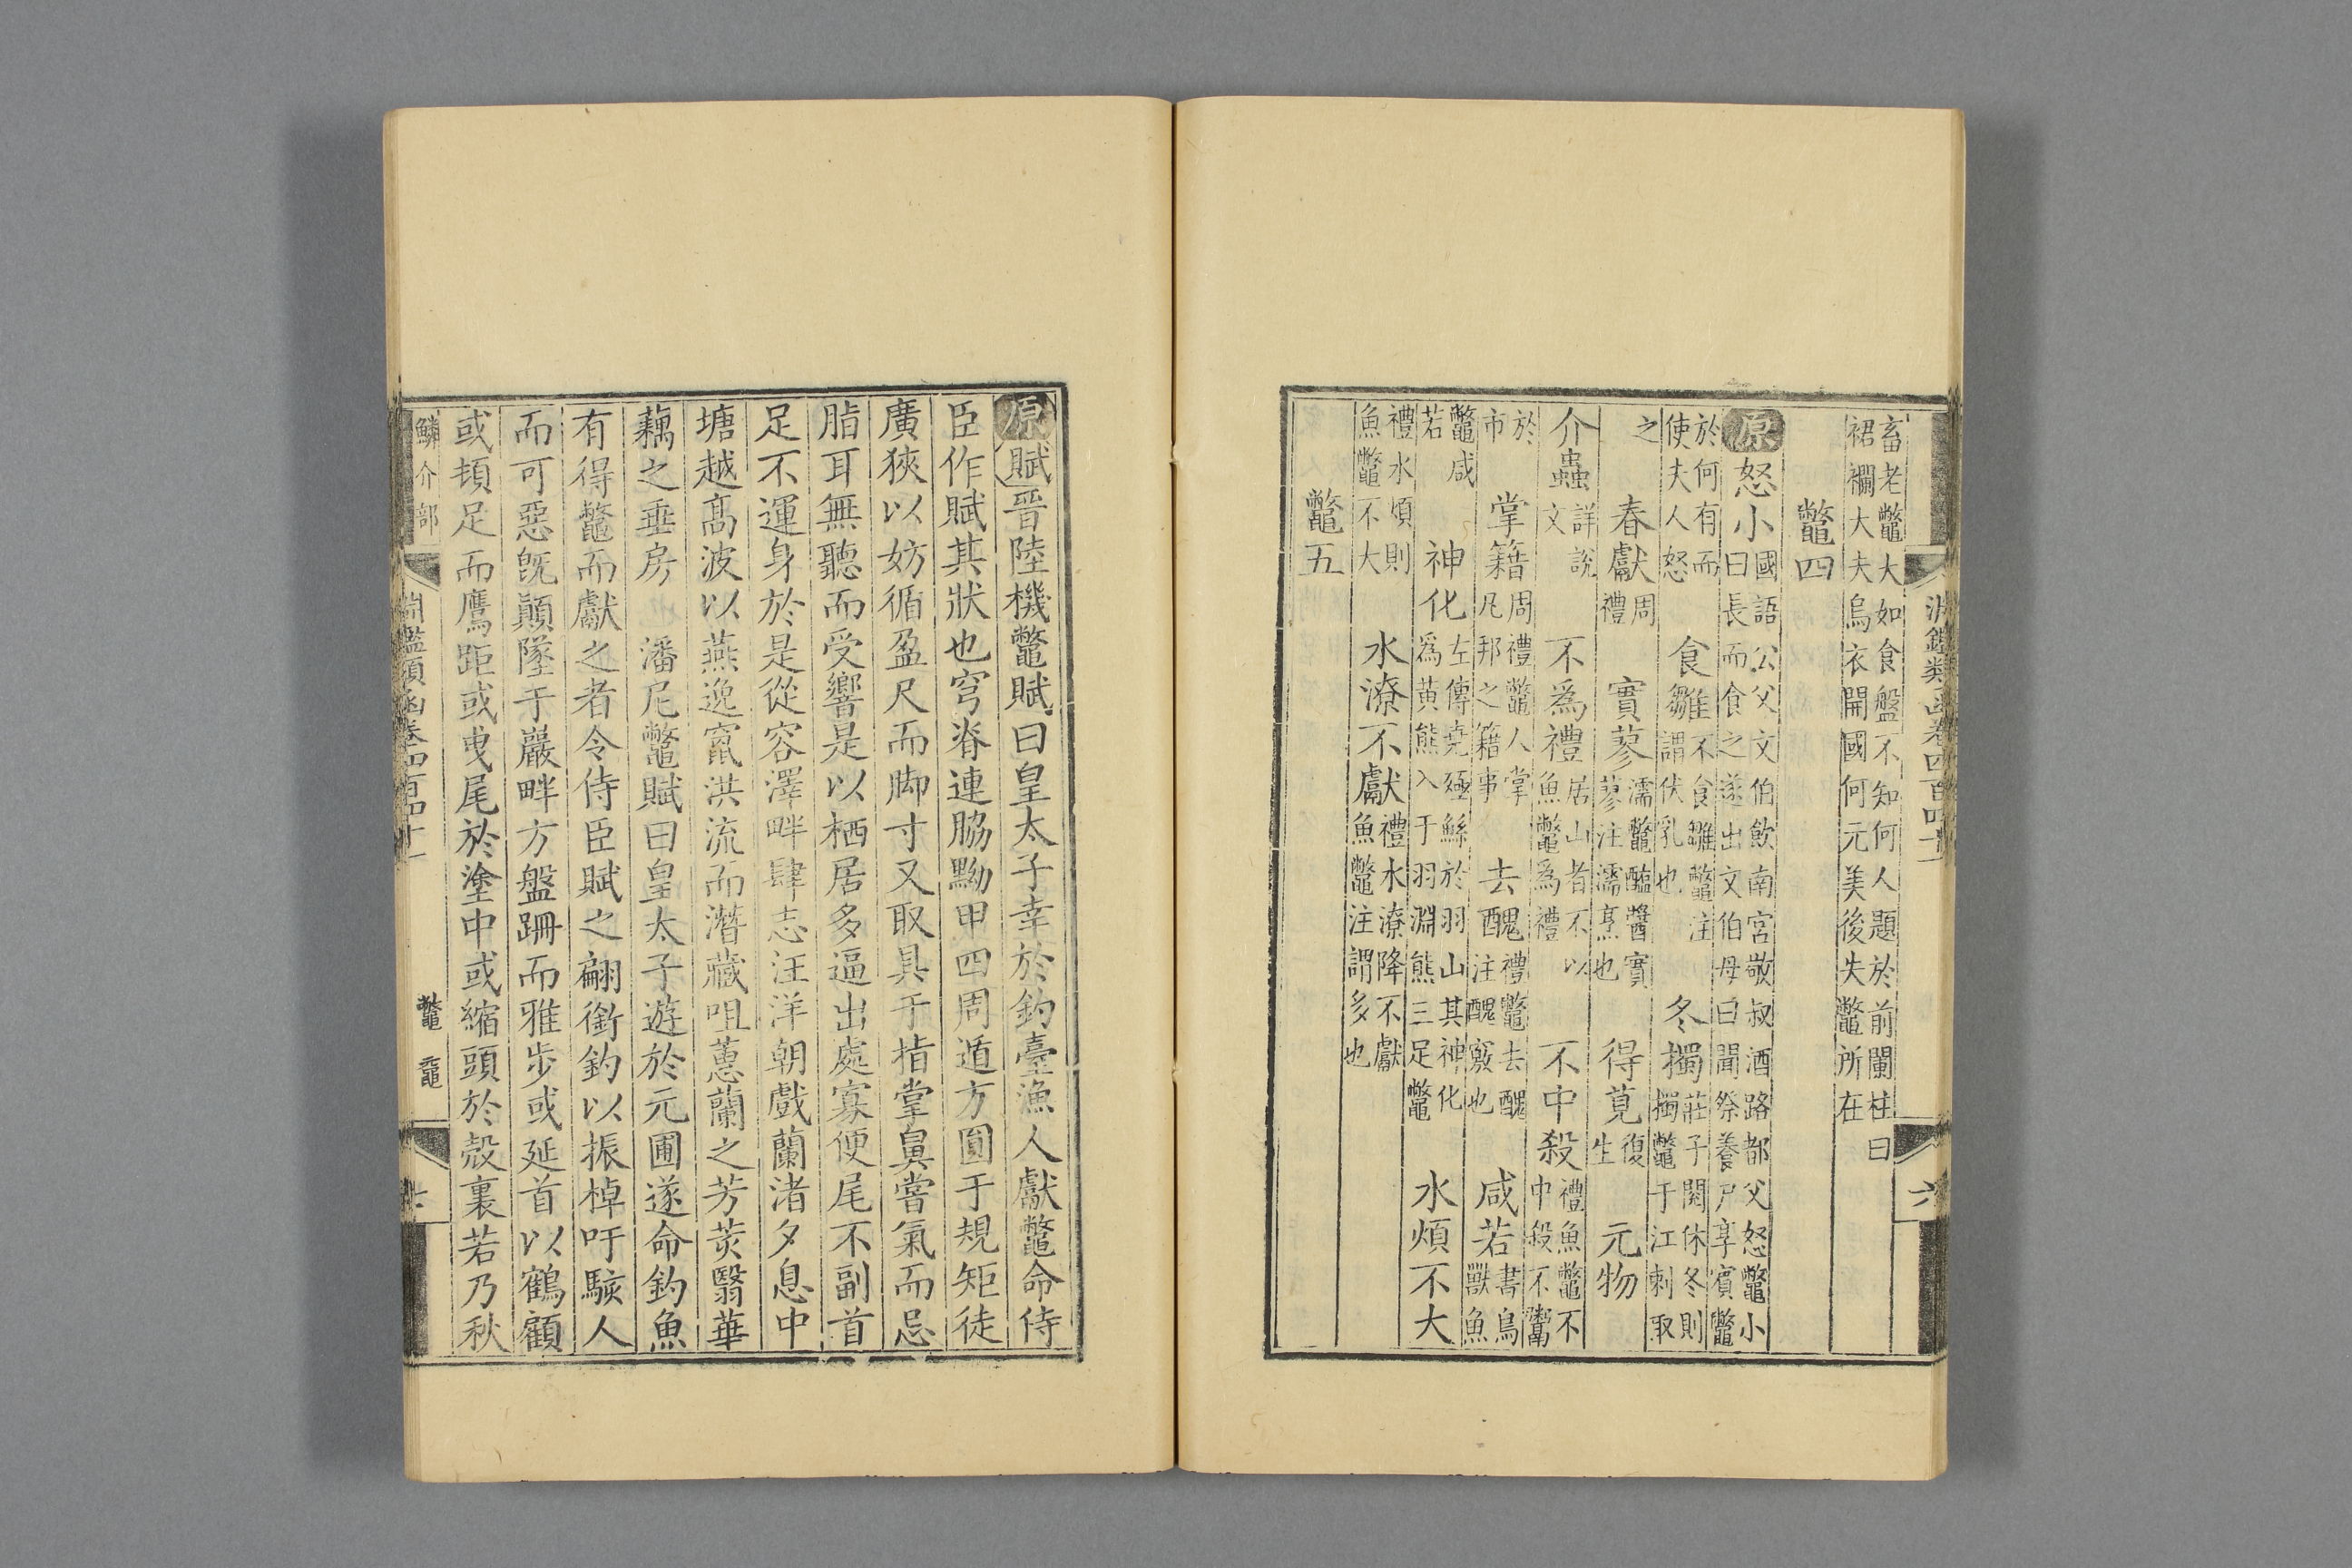 淵鑑類函卷四百四十一　六
畜老鼈大如食盤不知何人題於前闌柱曰
裙襴大夫烏衣開國何元美後失鼈所在
鼈四
原怒小國語公父文伯飲南宮敬叔酒路都父怒鼈小曰長而食之遂出文伯母曰聞祭養尸享賓鼈
於何有而使夫人怒　食雛不食雛鼈注謂伏乳也　冬擉莊子閱休冬則擉鼈于江刺取
之　春獻周禮　實蓼濡鼈醢醬實蓼注濡烹也　得莧復生　元物
介蟲詳說文　不爲禮居山者不以魚鼈爲禮　不中殺禮魚鼈不中殺不鬻
於市　掌籍周禮鼈人掌凡邦之籍事　去醜禮鼈去醜注醜竅也　咸若書鳥獸魚
鼈咸若　神化左傳堯殛鯀於羽山其神化爲黄熊入于羽淵熊三足鼈　水煩不大
禮水煩則魚鼈不大　水潦不獻禮水潦降不獻魚鼈注謂多也
鼈五
原賦晉陸機鼈賦曰皇太子幸於釣臺漁人獻鼈命侍
臣作賦其狀也穹脊連脇黝甲四周遁方圓于規矩徒
廣狹以妨循盈尺而脚寸又取具于指掌鼻嘗氣而忌
脂耳無聽而受響是以栖居多逼出處寡便尾不副首
足不運身於是從容澤畔肆志汪洋朝戲蘭渚夕息中
塘越高波以燕逸竄洪流而潛藏咀蕙蘭之芳荄翳華
藕之垂房　潘尼鼈賦曰皇太子遊於元圃遂命釣魚
有得鼈而獻之者令侍臣賦之翩銜釣以振棹吁駭人
而可惡旣顚墜于巖畔方盤跚而雅步或延首以鶴顧
或頓足而鷹距或曳尾於塗中或縮頭於殼裏若乃秋
鱗介部　淵鑑類函卷四百四十一　鼈　黿